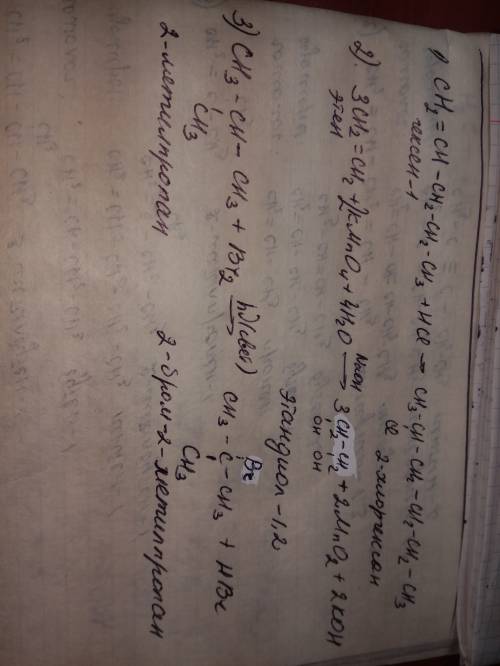 1) CH2=CH-CH2-CH2-CH3 + HCl → CH3-CH-CH2-CH2-CH2-CH3
Cl
гексен-1 2-хлоргексан
2). 3CH2=CH2 + 2KMnO4 + 4H2O NaOH → 3CH2-CH2 + 2MnO2 + 2KOH
OH OH
этен Этандиол-1,2
3) CH3-CH-CH3 + Br2 hν(свет) → CH3-C-CH3 + HBr
CH3 Br CH3
2-метилпропан 2-бром-2-метилпропан